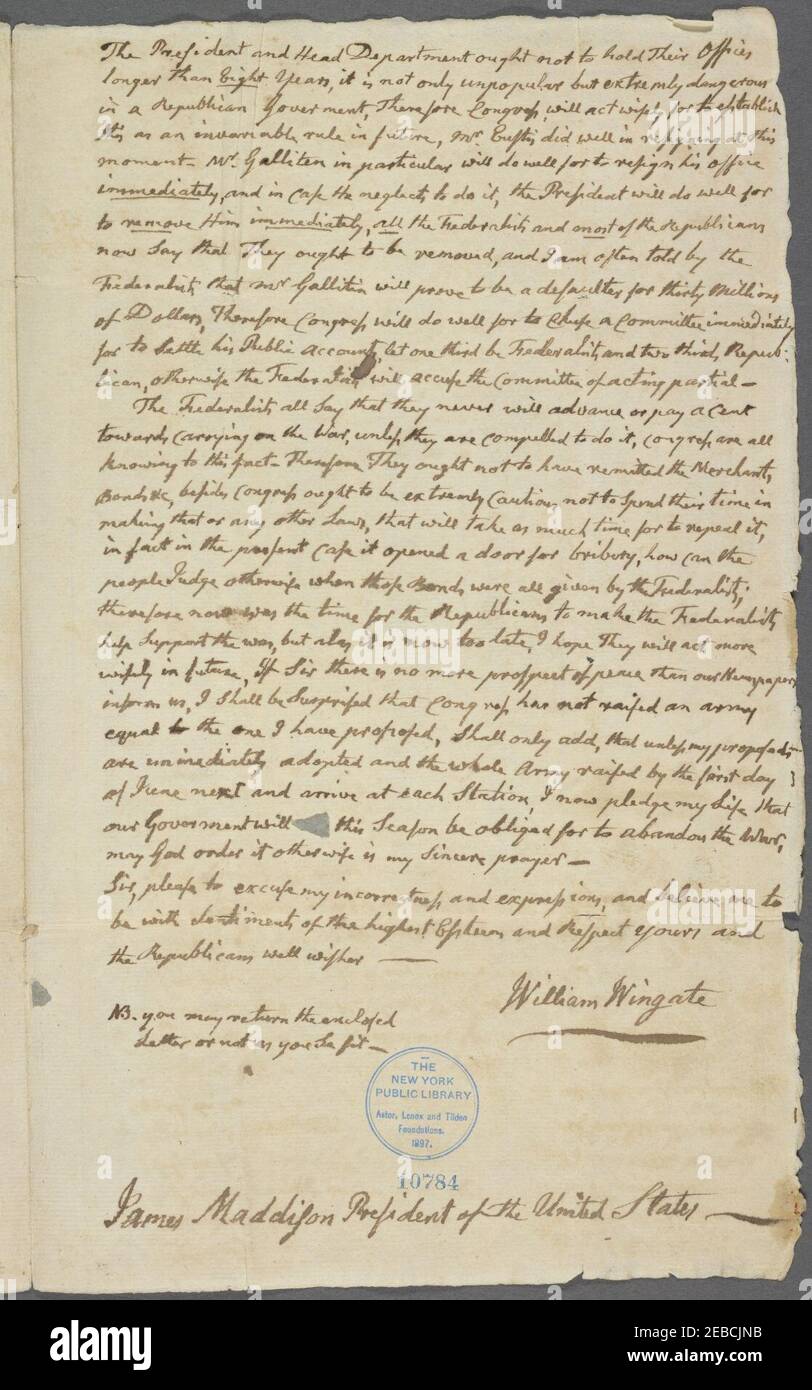 The President and Head Department ought not to hold Their Offices
longer than Eight Years, it is not only unpopular but extremly dangerous
in a Republican Goverment, Therefore Congress, will act wisely for to establish
this as an invariable rule in future, Mr. Eustis did well in resigning at this
moment - Mr. Galliten in particular will do well for to resign his office
immediately, and in case He neglects to do it, the President will do well for
to remove Him immediately, all the Federalists and most of the Republicans
now Say that They ought to be removed, and I am often told by the
Federalists that Mr. Gallitin will prove to be a defaulter for thirty Millions
of Dollars, Therefore Congress will do well for to Chuse a Committee immediately
for to Settle his Public Accounts, let one third be Federalists and two thirds Repub-
lican, otherwise the Federalists will accuse the Committee of acting partial -
The Federalists all Say that they never will advance or pay a Cent
towards Carrying on the War, unless they are compelled to do it, Congress are all
knowing to this fact - Therefore They ought not to have remitted the Merchants
Bonds &c, besides Congress ought to be extremly Cautious not to Spend their time in
making that or any other Laws, that will take as much time for to repeal it,
in fact in the present Case it opened a door for bribery, how can the
people Judge otherwise when those Bonds were all given by the Federalists,
therefore now was the time for the Republicans to make the Federalists
help Support the war, but alas it is now too late, I hope They will act more
wisely in future, If Sir there is no more prospect of peace than our Newspapers
inform us, I Shall be Surprised that Congress has not raised an army
equal to the one I have proposed, Shall only add, that unless my proposals
are immediately adopted and the whole Army raised by the first day
of June next and arrive at each Station, I now pledge my Life that
our Goverment will this Season be obliged for to abandon the War,
may God order it otherwise is my Sincere prayer -
Sir, please to excuse my incorrectness and expressions, and believe me to
be with Sentiments of the highest Esteem and Respect yours and
the Republicans well wisher -
William Wingate
NB. you may return the enclosed
Letter or not as you Se fit -
THE
NEW YORK
PUBLIC LIBRARY
Astor, Lenox and Tilden
Foundations.
1897.
10784
James Maddison President of the United States
alamy
Image ID: 2EBCJNB
www.alamy.com